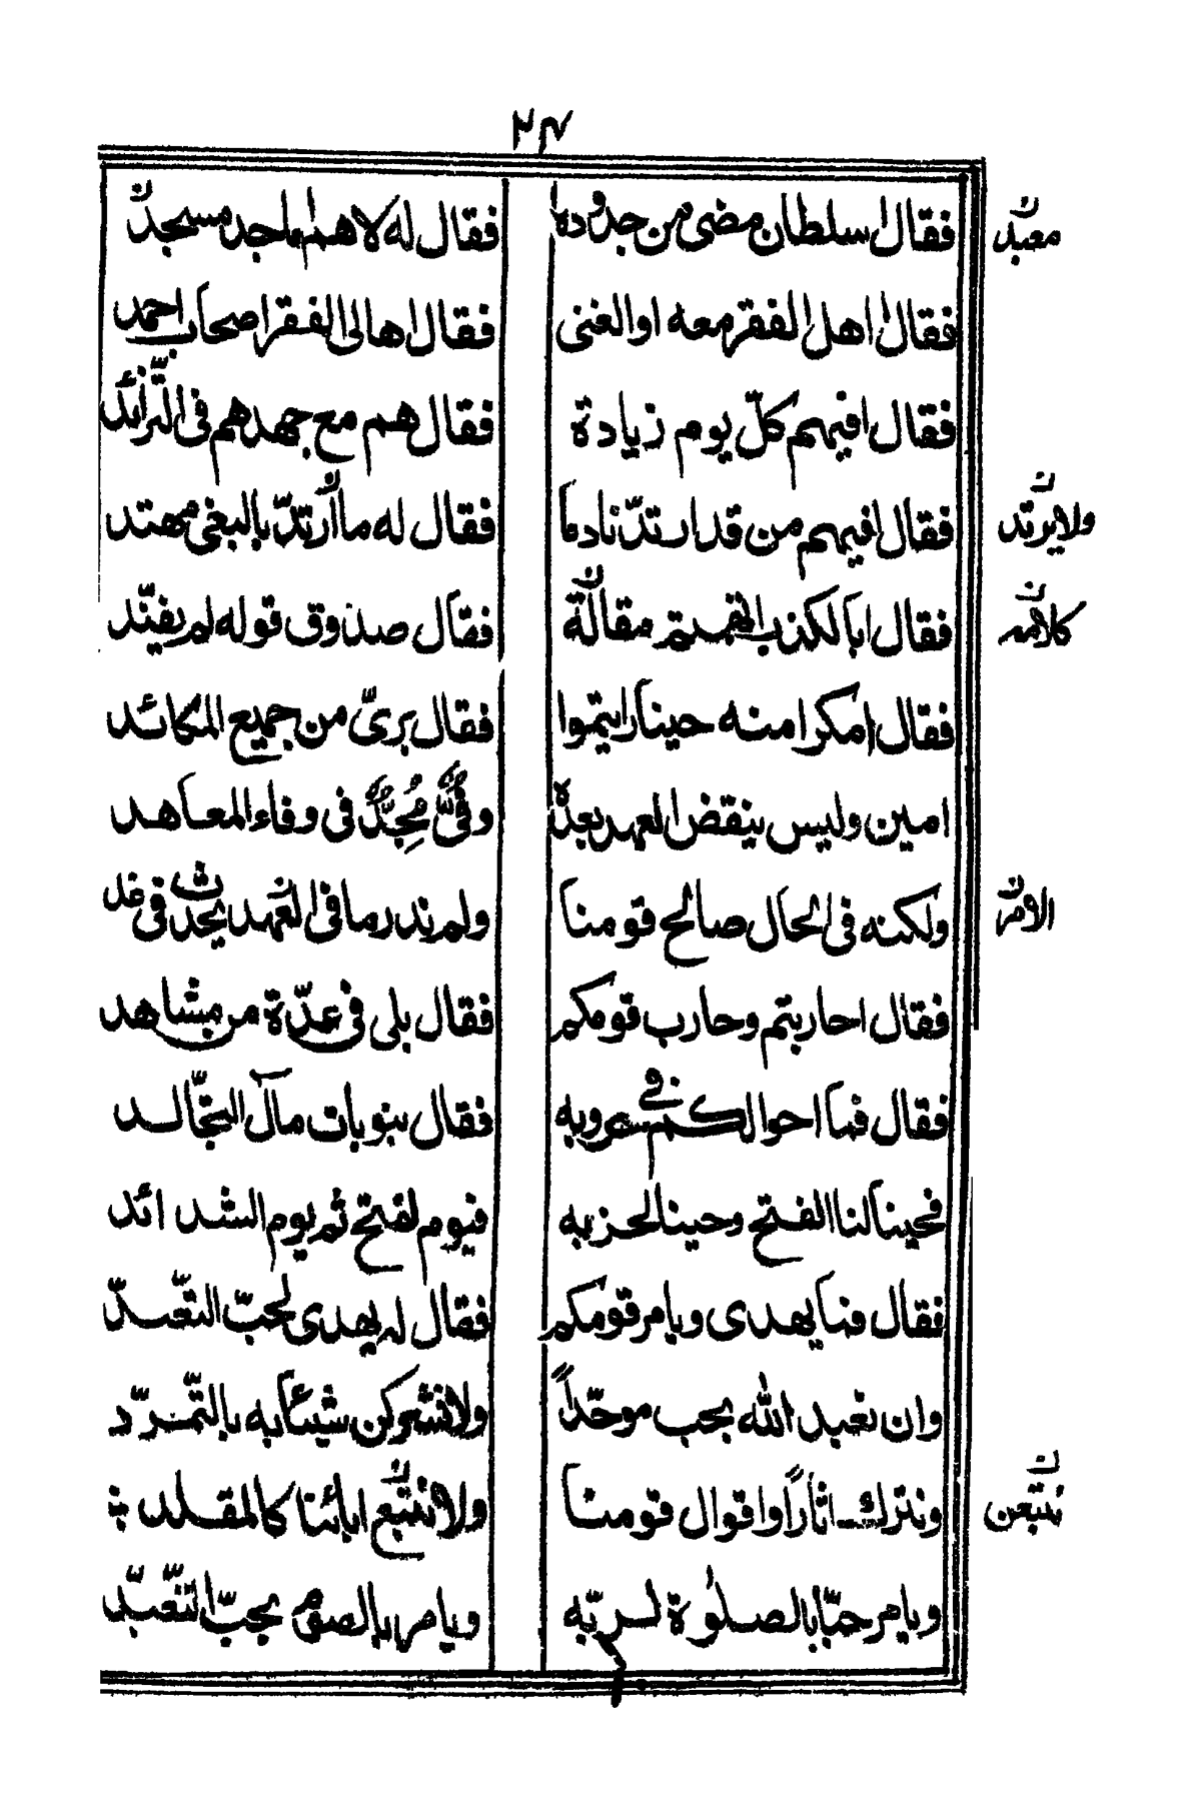 ٢٤٧
فقال اسلطان مضى من جدوده
فقال له لا هم اماجد مسجد
معبد ن
فقال اهل الفقر معه او الغنى
فقال اهالى الفقر اصحاب احمد
فقال افيهم كلّ يوم زيادة
فقال هم مع جهدهم فى التّزائد
فقال افيهم من قد ارتدّ نادما
فقال له ما ارتدّ بالبغى مهتد
ولا يرتد ن
فقال ابا لكذب اتهمتم مقالة
فقال صدوق قوله لم يفنّد
كلامه ن
فقال امكرا منه حينا رايتموا
فقال برىّ من جميع المكائد
امين وليس ينقض العهد بعده
وفىّ مُجِدٌّ فى وفاء المعاهد
ولكنه فى الحال صالح قومنا
ولم ندر ما فى العهد يحدث فى غد
الامر ن
فقال احاربتم وحارب قومكم
فقال بلى فى عدّة من مشاهد
فقال فما احوالكم فى حروبه
فقال بنوبات مآل التجالد
فحينا لنا الفتح وحينا لحزبه
فيوم لفتح ثم يوم الشدائد
فقال فما يهدى ويامر قومكم
فقال له يهدى لحبّ التعّبدّ
وان نعبد الله بحب موحّداً
ولا نشركن شيئاً به بالتّمرّد
ونترك اثاراً واقوال قومنا
ولا نتبع ابائنا كالمقلد
نتّبعن ن
ويامر حبّا بالصلوة لربّه
ويامر بالصوم بحبّ التّعبّد